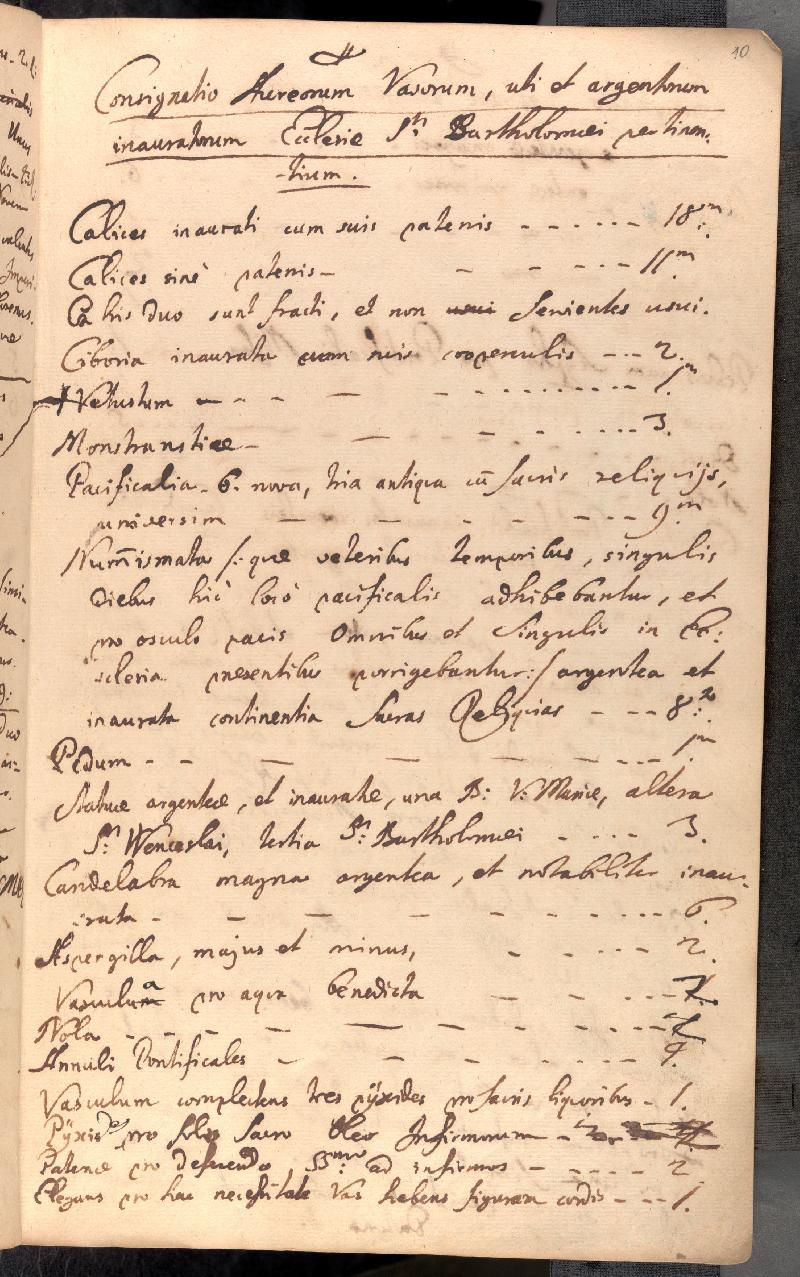 40
Consignatio Aureorum Vasorum, uti et argenteorum
inauratorum Ecclesie Sti Bartholomaei pertinen-
-tium.
Calices inaurati cum suis patenis - - - - - - 18m.
Calices sine patenis - - - - - 11m
Ex his duo sunt fracti, et non servientes usui.
Ciboria inaurata cum suis cooperculis - - - 2.
Vetustum - - - - - - - - - - 1m
Monstrantiae - - - - - - - - 3.
Pacificalia - 6. nova, tria antiqua cū sacris reliquijs,
universim - - - - - - - 9m
Num̃ismata /: que veteribus temporibus, singulis
diebus hic loco pacificalis adhibebantur, et
pro osculo pacis Omnibus et Singulis in Ec:
:clesia presentibus porrigebantur :/ argentea et
inaurata continentia Sacras Reliquias - - - 8.
Pedum - - - - - - - - - 1m
Statuae argenteae, et inauratae, una B: V: Mariae, altera
Sti Wenceslai, tertia Sti Bartholomaei - - - - 3.
Candelabra magna argentea, et notabiliter inau:
:rata - - - - - - - - - 6.
Aspergilla, majus et minus, - - - - - 2.
Vascula pro aqua benedicta - - - -
Nola - - - - - - - - -
Annuli Pontificales - - - - - - 9.
Vasculum complectens tres pÿxides pro sacris liquoribus - 1.
Pÿxides pro solo Sacro Oleo Infirmorum - 2.
Patenae pro deferendo SSmo ad infirmos - - - - - 2
Elegans pro hac necessitate Vas habens figuram cordis - - - 1.